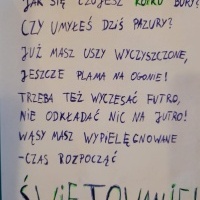 JAK SIĘ CZUJESZ KOTKU BURY?
CZY UMYŁEŚ DZIŚ PAZURY?
JUŻ MASZ USZY WYCZYSZCZONE,
JESZCZE PLAMA NA OGONIE!
TRZEBA TEŻ WYCZESAĆ FUTRO,
NIE ODKŁADAĆ NIC NA JUTRO!
WĄSY MASZ WYPIELĘGNOWANE
-CZAS ROZPOCZĄĆ
ŚWIĘTOWANIE!